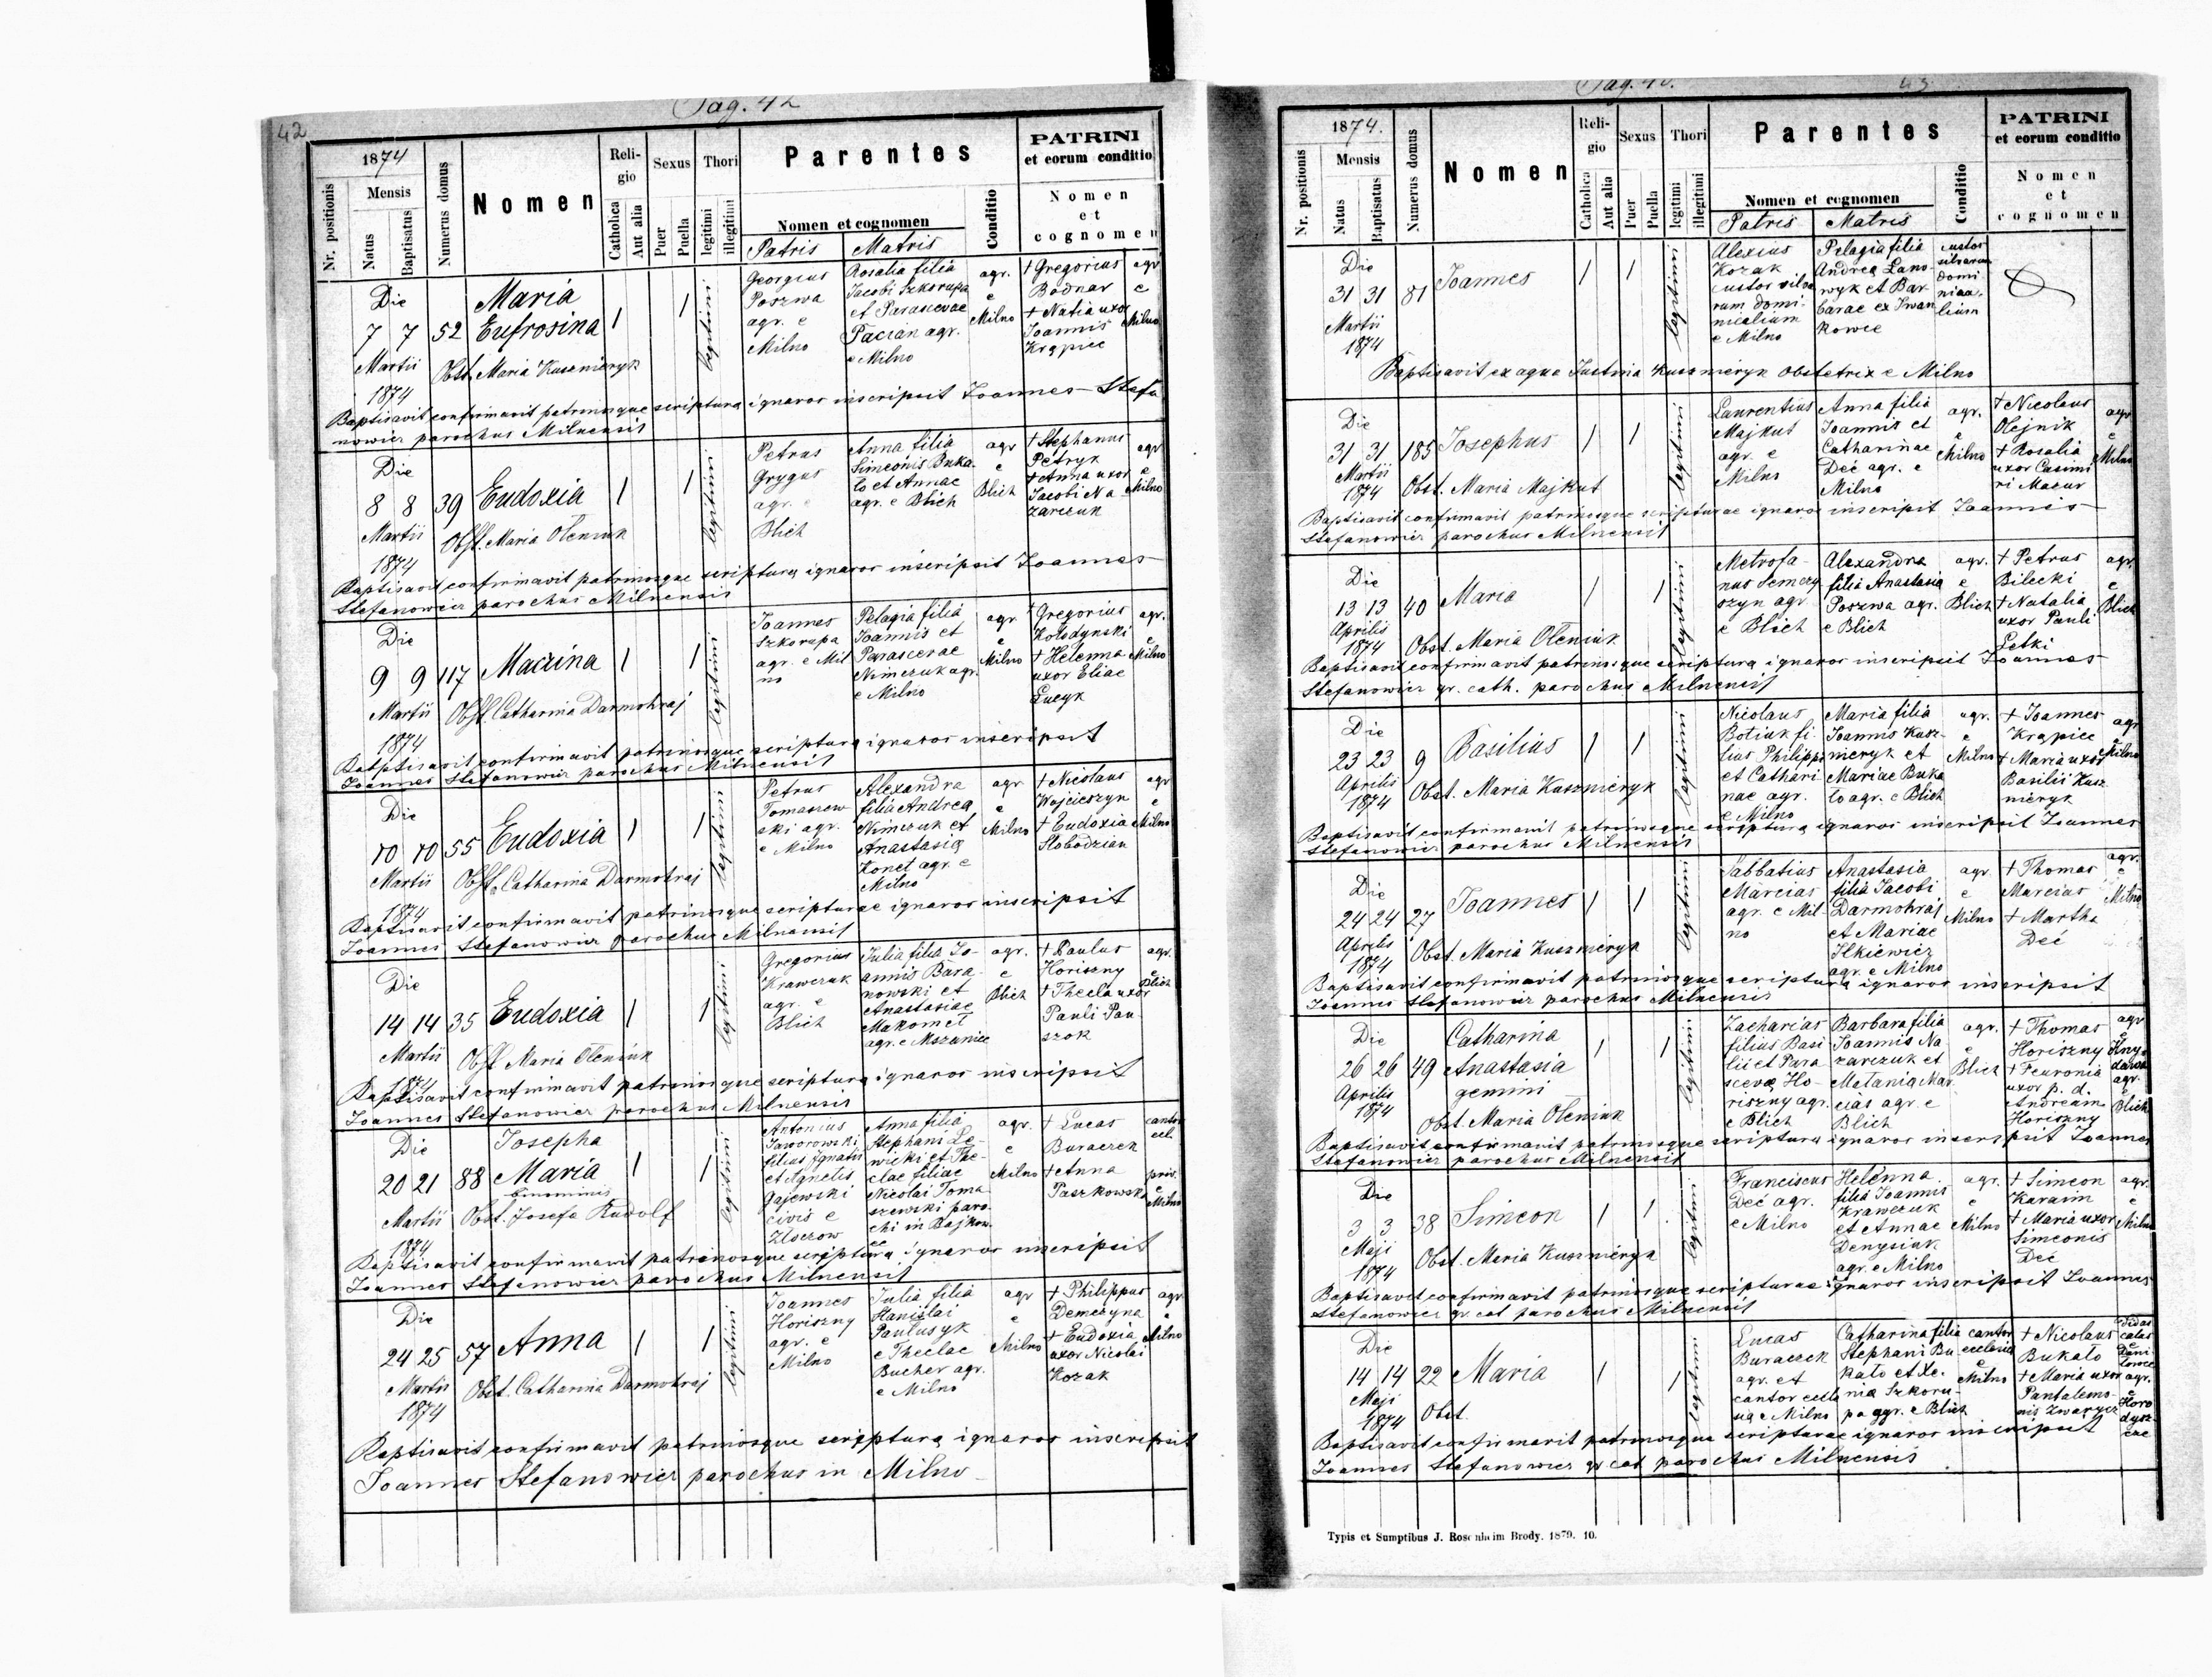 Pag. 42
42
1874
Nr. positionis
Mensis
Natus
Baptisatus
Numerus domus
Nomen
Religio
Catholica
Aut alia
Sexus
Puer
Puella
Thori
legitimi
illegitimi
Parentes
Nomen et cognomen
Patris Matris
Conditio
PATRINI
et eorum conditio
Nomen
et
cognomen
Die
7 7 52
Martii
1874
Maria
Eufrosina
1 1 legitimi
Obst. Maria Kuszmeryk
Georgius
Poszwa
agr. e
Milno
Rosalia filia
Jacobi Szkorupa
et Parascevae
Pacian agr.
e Milno
agr.
e
Milno
+ Gregorius
Bodnar
+ Natia uxor
Joannis
Krąpiec
agr
e
Milno
Baptisavit confirmavit patrinosque scriptura ignaros inscripsit Joannes Stefa
nowicz parochus Milnensis
Die
8 8 39
Martii
1874
Eudoxia
1 1 legitimi
Obst. Maria Oleniuk
Petrus
Grygus
agr. e
Blich
Anna filia
Simeonis Buka-
lo et Annae
agr. e Blich
agr
e
Blich
+ Stephanus
Petryk
+ Anna uxor
Jacobi Na
zarczuk
agr
e
Milno
Baptisavit confirmavit patrinosque scriptura ignaros inscripsit Joannes
Stefanowicz parochus Milnensis
Die
9 9 117
Martii
1874
Macrina
1 1 legitimi
Obst. Catharina Darmohraj
Joannes
Szkorupa
agr. e Mil
no
Pelagia filia
Joannis et
Parascevae
Nimczuk agr.
e Milno
agr
e
Milno
+ Gregorius
Kołodynski
+ Helenna
uxor Eliae
Łucyk
agr.
e
Milno
Baptisavit confirmavit patrinosque scriptura ignaros inscripsit
Joannes Stefanowicz parochus Milnensis
Die
10 10 55
Martii
1874
Eudoxia
1 1 legitimi
Obst. Catharina Darmohraj
Petrus
Tomaszew
ski agr.
e Milno
Alexandra
filia Andrea
Nimczuk et
Anastasia
Konet agr. e
Milno
agr
e
Milno
+ Nicolaus
Wojcieszyn
+ Eudoxia
Slobodzian
agr
e
Milno
Baptisavit confirmavit patrinosque scripturae ignaros inscripsit
Joannes Stefanowicz parochus Milnensis
Die
14 14 35
Martii
1874
Eudoxia
1 1 legitimi
Obst Maria Oleniuk
Gregorius
Krawczuk
agr. e
Blich
Julia filia Jo-
annis Bara-
nowski et
Anastasiae
Makomet
agr. e Mszaniec
agr.
e
Blich
+ Paulus
Horiszny
+ Thecla uxor
Pauli Pau-
szok
agr.
e
Blich
Baptisavit confirmavit patrinosque scriptura ignaros inscripsit
Joannes Stefanowicz parochus Milnensis
Die
20 21 88
Martii
1874
Josepha
Maria
binominis
1 1 legitimi
Obst. Josefa Rudolf
Antonius
Jaworowski
filius Ignatii
et Agnetis
Gajewski
civis e
Złoczow
Anna filia
Stephani Le-
wicki et The-
clae filiae
Nicolai Toma
szewski paro-
chi in Bajkow
ce
agr.
e
Milno
+ Lucas
Buraczek
+ Anna
Paszkowska
cantor
ecl.
priv.
e
Milno
Baptisavit confirmavit patrinosque scriptura ignaros inscripsit
Joannes Stefanowicz parochus Milnensis
Die
24 25 57
Martii
1874
Anna
1 1 legitimi
Obst. Catharina Darmohraj
Joannes
Horiszny
agr. e
Milno
Julia filia
Stanislai
Paulusyk
e Theclae
Bucher agr.
e Milno
agr
e
Milno
+ Philippus
Demczyna
+ Eudoxia
uxor Nicolai
Kozak
agr.
e
Milno
Baptisavit confirmavit patrinosque scriptura ignaros inscripsit
Joannes Stefanowicz parochus in Milno
43
1874.
Nr. positionis
Mensis
Natus
Baptisatus
Numerus domus
Nomen
Religio
Catholica
Aut alia
Sexus
Puer
Puella
Thori
legitimi
illegitimi
Parentes
Nomen et cognomen
Patris Matris
Conditio
PATRINI
et eorum conditio
Nomen
et
cognomen
Die
31 31 81
Martii
1874
Joannes
1 1 legitimi
Alexius
Kozak
custor silva
rum domi-
nicalium
e Milno
Pelagia filia
Andrea Lano-
wyk et Bar-
barae ex Iwan
kowce
custor
silvarum
domi
nica-
lium
Baptisavit ex aqua Justina Kuszmeryk obstetrix e Milno
Die
31 31 185
Martii
1874
Josephus
1 1 legitimi
Obst. Maria Majkut
Laurentius
Majkut
agr. e
Milno
Anna filia
Joannis et
Catharinae
Deć agr. e
Milno
agr.
e
Milno
+ Nicolaus
Olejnik
+ Rosalia
uxor Casimi
ri Mazur
agr
e
Milno
Baptisavit confirmavit patrinosque scripturae ignaros inscripsit Joannes
Stefanowicz parochus Milnensis
Die
13 13 40
Aprilis
1874
Maria
1 1 legitimi
Obst. Maria Oleniuk
Metrofa-
nus Semczy
szyn agr
e Blich
Alexandra
filia Anastasia
Poszwa agr.
e Blich
agr.
e
Blich
+ Petrus
Bilecki
+ Natalia
uxor Pauli
Letki
agr.
e
Blich
Baptisavit confirmavit patrinosque scriptura ignaros inscripsit Joannes
Stefanowicz gr. cath. parochus Milnensis
Die
23 23 9
Aprilis
1874
Basilius
1 1 legitimi
Obst. Maria Kuszmeryk
Nicolaus
Botiuk fi-
lius Philippi
et Cathari-
nae agr.
e Milno
Maria filia
Joannis Kusz-
meryk et
Mariae Buka
lo agr. e Blich
agr.
e
Milno
+ Joannes
Krąpiec
+ Maria uxor
Basilii Kusz
meryk
agr
e
Milno
Baptisavit confirmavit patrinosque scriptura ignaros inscripsit Joannes
Stefanowicz parochus Milnensis
Die
24 24 27
Aprilis
1874
Joannes
1 1 legitimi
Obst. Maria Kuszmeryk
Sabbatius
Marcias
agr. e Mil-
no
Anastasia
filia Jacobi
Darmohraj
et Mariae
Ilkiewicz
agr. e Milno
agr
e
Milno
+ Thomas
Marcias
+ Martha
Deć
agr.
e
Milno
Baptisavit confirmavit patrinosque scriptura ignaros inscripsit
Joannes Stefanowicz parochus Milnensis
Die
26 26 49
Aprilis
1874
Catharina
Anastasia
gemini
1 1 legitimi
Obst. Maria Oleniuk
Zacharias
filius Basi
lii et Para
sceva Ho-
riszny agr.
e Blich
Barbara filia
Joannis Na-
zarczuk et
Melania Mar
cias agr. e
Blich
agr.
e
Blich
+ Thomas
Horiszny
+ Feuronia
uxor p. d.
Andream
Horiszny
agr
e
agr.
e
Blich
Baptisavit confirmavit patrinosque scriptura ignaros inscripsit Joannes
Stefanowicz parochus Milnensis
Die
3 3 38
Maji
1874
Simeon
1 1 legitimi
Obst. Maria Kuszmeryk
Franciscus
Deć agr.
e Milno
Helenna
filia Joannis
Krawczuk
et Annae
Denysiuk
agr. e Milno
agr.
e
Milno
+ Simeon
Karaim
+ Maria uxor
Simeonis
Deć
agr.
e
Milno
Baptisavit confirmavit patrinosque scripturae ignaros inscripsit Joannes
Stefanowicz gr cat parochus Milnensis
Die
14 14 22
Maji
1874
Maria
1 1 legitimi
Obst.
Lucas
Buraczek
agr. et
cantor eccle
siae Milno
Catharina filia
Stephani Bu
kalo et Xe-
nia Szkoru-
pa agr. e Blich
cantor
ecclesia
e
Milno
+ Nicolaus
Bukalo
+ Maria uxor
Pantalemo-
nis Zwarycz
agr.
e
Horo
dysz-
cze
Baptisavit confirmavit patrinosque scripturae ignaros inscripsit
Joannes Stefanowicz gr cat parochus Milnensis
Typis et Sumptibus J. Rosenheim Brody. 1879. 10.